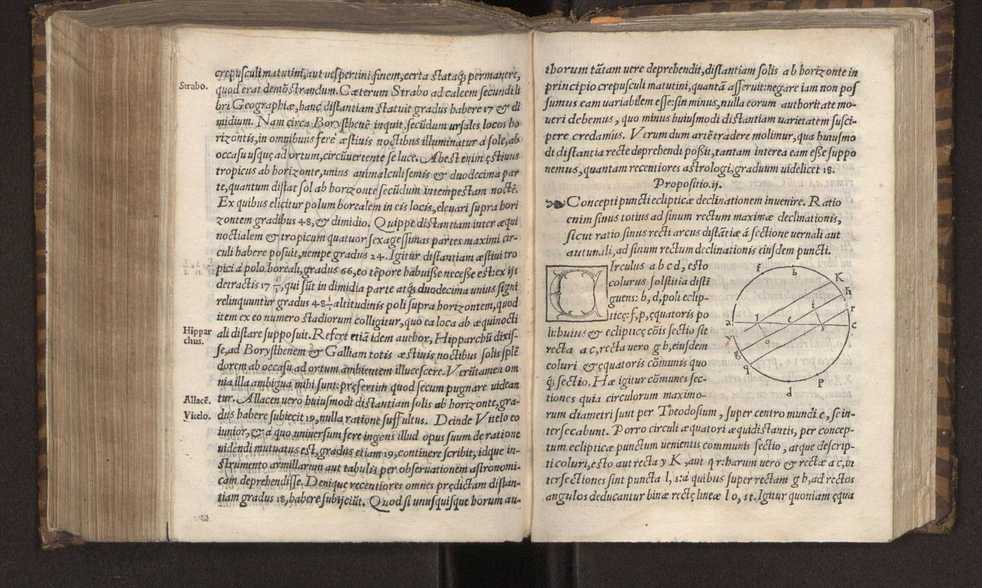 crepusculi matutini, aut uespertini finem, certa stataq; permanere,
Strabo.
quod erat demõstrandum. Cæterum Strabo ad calcem secundi li
bri Geographiæ, hanc distantiam statuit gradus habere 17 & di
midium. Nam circa Borysthenẽ inquit, secũdum ursales locos ho
rizontis, in omnibus ferè æstiuis noctibus illuminatur à sole, ab
occasu usque ad ortum, circũuertente se luce. Abest enim ęstiuus
tropicus ab horizonte, unius animalculi semis & duodecima par
te, quantum distat sol ab horizonte secũdum intempestam noctẽ.
Ex quibus elicitur polum borealem in eis locis, eleuari supra hori
zontem gradibus 48, & dimidio. Quippe distantiam inter æqui
noctialem & tropicum quatuor sexagesimas partes maximi cir-
culi habere posuit, nempe gradus 24. Igitur distantiam æstiui tro
pici à polo boreali, gradus 66, eo tẽpore habuisse necesse est: ex ijs
detractis 17 ½, qui sũt in dimidia parte atq; duodecima unius signi
relinquuntur gradus 48 ½ altitudinis poli supra horizontem, quod
item ex eo numero stadiorum colligitur, quò ea loca ab æquinocti
Hippar
chus.
ali distare supposuit. Refert etiã idem author, Hipparchũ dixis-
se, ad Borysthenem & Galliam totis æstiuis noctibus solis splẽ
dorem ab occasu ad ortum ambientem illucescere. Verũtamen om
nia illa ambigua mihi sunt: pręsertim quod secum pugnare uidean
Allacẽ.
tur. Allacen uero huiusmodi distantiam solis ab horizonte, gra-
Vitelo.
dus habere subiecit 19, nulla ratione suffultus. Deinde Vitelo eo
iunior, & a quo uniuersum fere ingens illud opus suum de ratione
uidendi mutuatus est, gradus etiam 19, continere scribit, idque in-
strumento armillarum aut tabulis per obseruationem astronomi-
cam deprehendisse. Denique recentiores omnes prędictam distan-
tiam gradus 18, habere subijciũt. Quod si unusquisque horum au-
thorum tãtam uere deprehendit, distantiam solis ab horizonte in
principio crepusculi matutini, quantã asseruit: negare iam non pos
sumus eam uariabilem esse: sin minus, nulla eorum authoritate mo-
ueri debemus, quo minus huiusmodi distantiam uarietatem susci-
pere credamus. Verum dum artẽ tradere molimur, qua huiusmo
di distantia recte deprehendi possit, tantam interea eam esse suppo
nemus, quantam recentiores astrologi, graduum uidelicet 18.
Propositio.ij.
Concepti puncti eclipticæ declinationem inuenire. Ratio
enim sinus totius ad sinum rectum maximæ declinationis,
sicut ratio sinus recti arcus distãtiæ à sectione uernali aut
autumnali, ad sinum rectum declinationis eiusdem puncti.
Circulus a b c d, esto
colurus solstitia disti
guens: b, d, poli eclip-
ticę: f, p, ęquatoris po
li: huius & eclipticę cõis sectio sit
recta a c, recta uero g h, eiusdem
coluri & ęquatoris cõmunis quo
q; sectio. Hæ igitur cõmunes sec-
tiones quia circulorum maximo-
rum diametri sunt per Theodosium, super centro mundi e, se in-
tersecabunt. Porro circuli æquatori æquidistantis, per concep-
tum eclipticæ punctum uenientis communis sectio, atque descrip-
ti coluri, esto aut recta y K, aut q r: harum uero & rectæ a c, in
tersectiones sint puncta l, s: à quibus super rectam g h, ad rectos
angulos deducantur binæ rectę lineæ l o, s t. Igitur quoniam ęqua